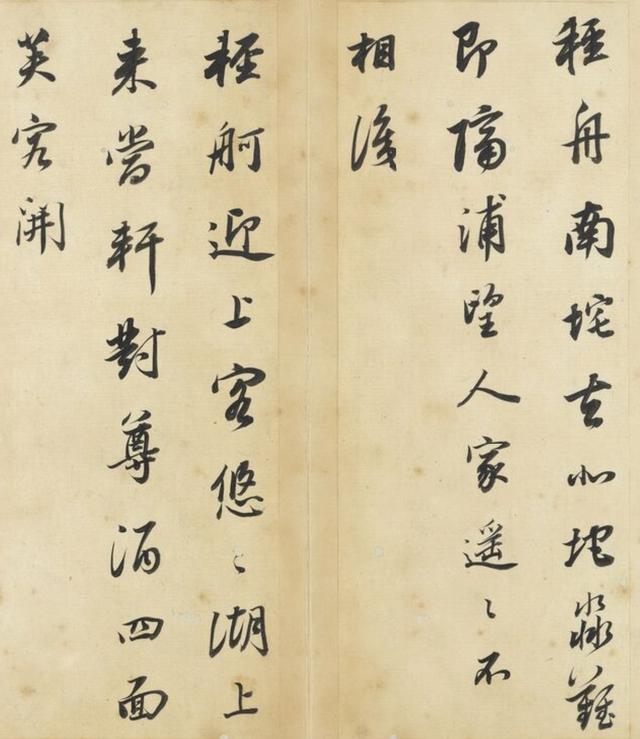 輕舟南垞去北垞淼難
即隔浦望人家遥〻不
相識
輕舸迎上客悠〻湖上
来當軒對尊酒四面
芙容開